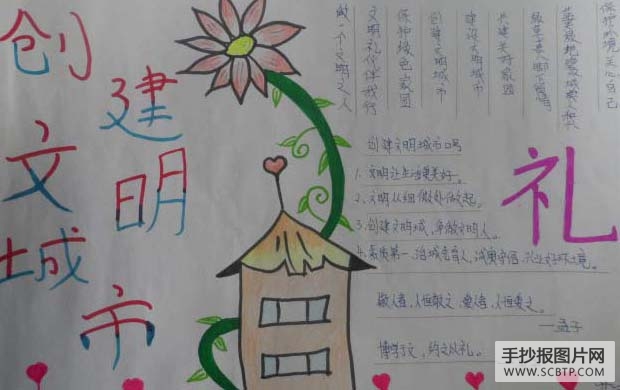 创建文明城市
做一个文明之人
文明礼仪伴我行
保护绿色家园
创建文明城市
建设文明城市
共建美好家园
保护环境关心自己
创建文明城市口号
1.文明让生活更美好。
2.文明从细微处做起。
3.创建文明城,争做文明人。
4.素质第一,治城育人,诚实守信,兴业好环境。
敬人者,人恒敬之,爱者,人恒爱之。
——孟子
博学于文,约之以礼。
礼
手抄报图片网
WWW.SCBTP.COM